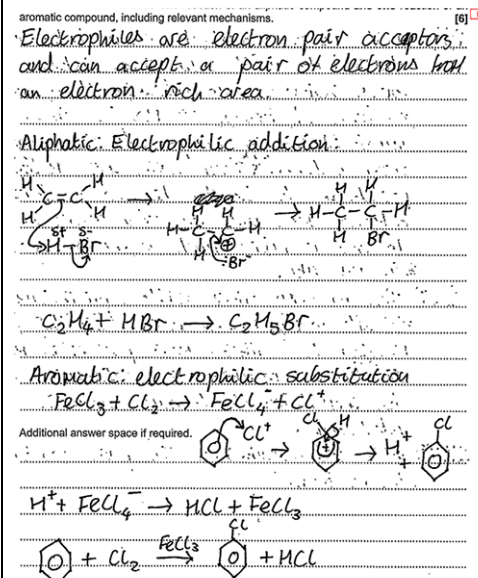 aromatic compound, including relevant mechanisms. [6]
Electrophiles are electron pair acceptors,
and can accept a pair of electrons from
an electron rich area.
Aliphatic: Electrophilic addition:
H H H H H H
C=C → H-C-C-H → H-C-C-H
H H H ⊕ H Br
δ+ δ-
H-Br :Br⁻
C₂H₄ + HBr → C₂H₅Br
Aromatic: electrophilic substitution
FeCl₃ + Cl₂ → FeCl₄⁻ + Cl⁺
Additional answer space if required. Cl⁺ → Cl H + → H⁺ + Cl
H⁺ + FeCl₄⁻ → HCl + FeCl₃
Cl
+ Cl₂ FeCl₃ → + HCl